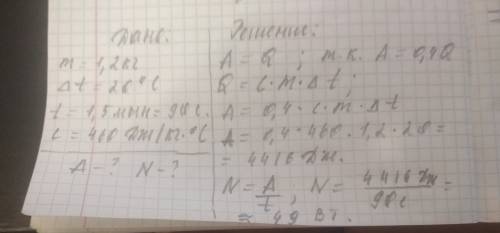 Дано:
m = 1,2кг
Δt = 20°C
t = 1,5мин = 90с.
c = 460 Дж/кг·°C
A-? N-?
Решение:
A = Q ; т.к. A = 0,4Q
Q = c·m·Δt ;
A = 0,4·c·m·Δt
A = 0,4·460·1,2·20 =
= 4416 Дж.
N = A/t ; N = 4416Дж/90с =
≈ 49 Вт.